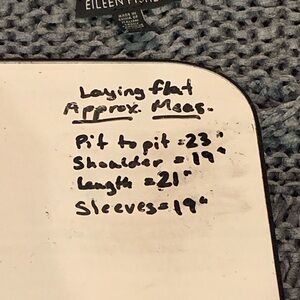 EILEEN FISHER
Laying flat
Approx. Meas.
Pit to pit = 23"
Shoulder = 19"
Length = 21"
Sleeves = 19"